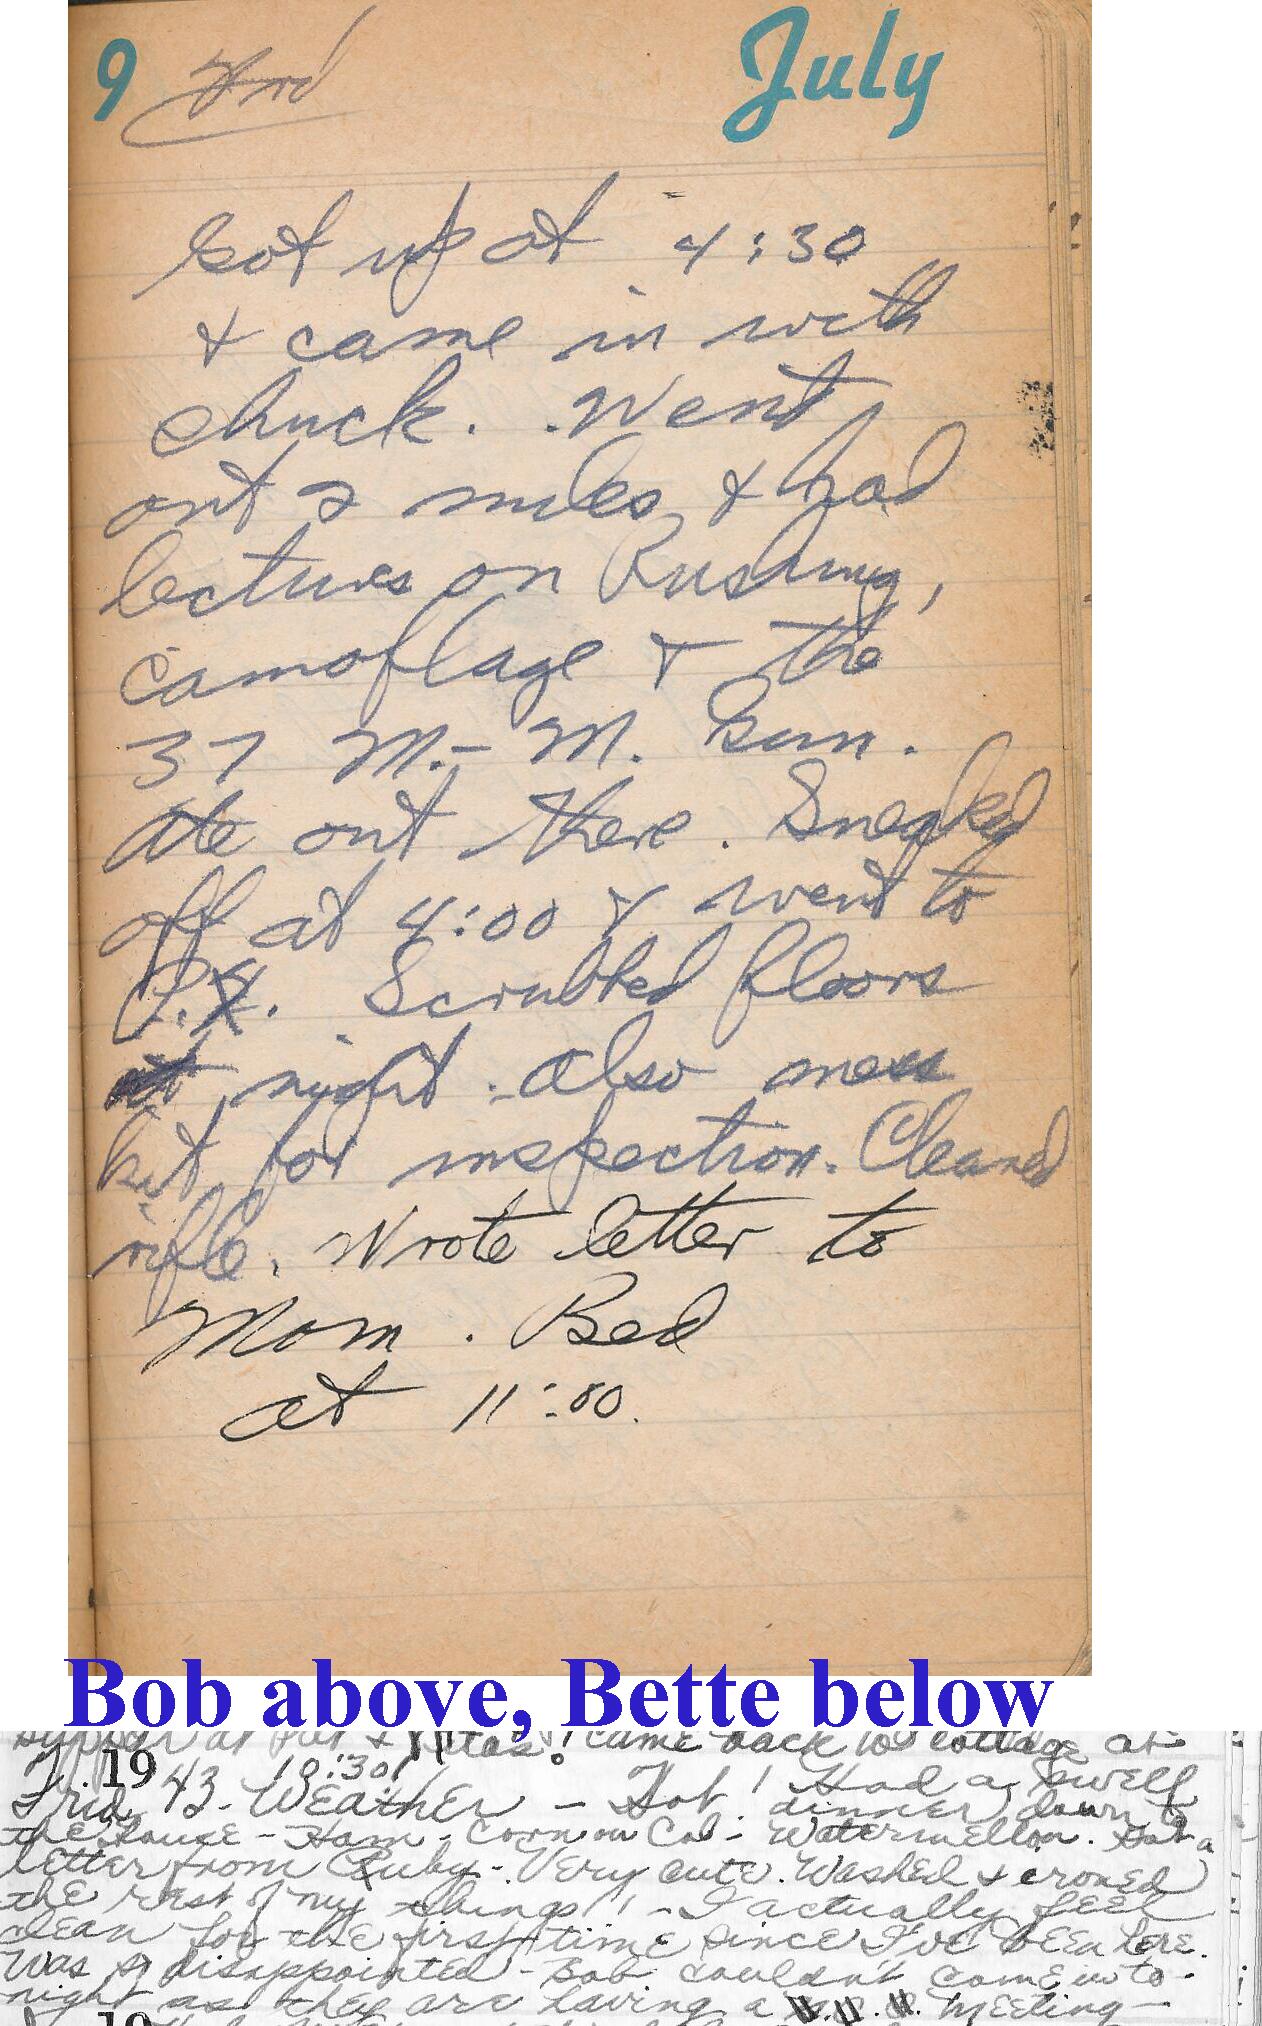 9 July
Got up at 4:30
& came in with
chuck. Went
out 2 miles & had
lectures on Rushing,
camoflage & the
37 M.-M. Gun.
Ate out there. Sneaked
off at 4:00 & went to
P.X. Scrubbed floors
at night. also mess
kit for inspection. Cleaned
rifle. Wrote letter to
Mom. Bed
at 11:00.
Bob above, Bette below
supper at & came back to cottage at
19 10:30!
Frid. 43- WEATHER - Hot! Had a swell
dinner down to
the House - Ham - corn on Cob - Watermellon. Got a
letter from Ruby - Very cute. Washed & ironed
the rest of my things!! - I actually feel
clean for the first time since I've been here.
Was so disappointed - Bob couldn't come in to-
night as they are having a meeting -
19